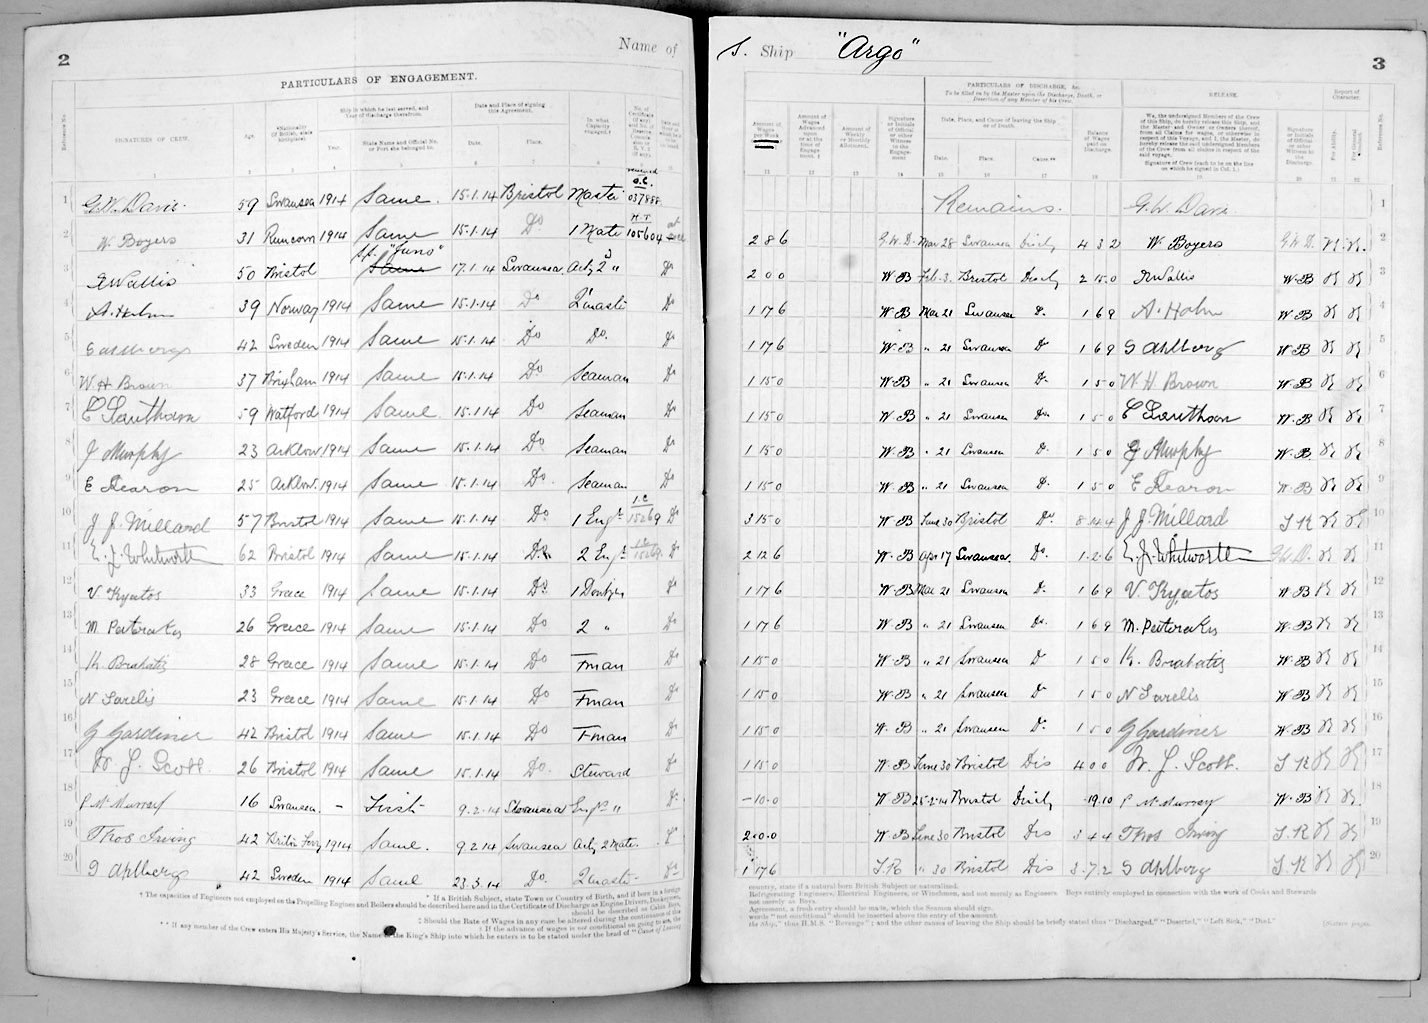 2
Name of
PARTICULARS OF ENGAGEMENT.
Reference No.
SIGNATURES OF CREW.
Age.
*Nationality (If British, state birthplace)
Ship in which he last served, and Year of discharge therefrom.
Year.
State Name and Official No. or Port she belonged to.
Date and Place of signing this Agreement.
Date.
Place.
In what Capacity engaged.†
1 G.W. Davis 59 Swansea 1914 Same. 15.1.14 Bristol Master O.C. 037888
2 W. Boyers 31 Runcorn 1914 Same 15.1.14 Do 1 Mate 105604
3 Wallis 50 Bristol S.S. "Juno" Same 17.1.14 Swansea Actg 2 " Do
4 A. Holm 39 Norway 1914 Same 15.1.14 Do Do
5 G Ahlberg 42 Sweden 1914 Same 15.1.14 Do Do. Do
6 W H Brown 37 Brixham 1914 Same 15.1.14 Do Seaman Do
7 C Southam 59 Watford 1914 Same 15.1.14 Do Seaman Do
8 J Murphy 23 Arklow 1914 Same 15.1.14 Do Seaman Do
9 E Kearon 25 Arklow 1914 Same 15.1.14 Do Seaman Do
10 J J. Millard 57 Bristol 1914 Same 15.1.14 Do 1 Engr 1.C 15269 Do
11 E. J. Whitworth 62 Bristol 1914 Same 15.1.14 Do 2 Engr Do
12 V. Kyatos 33 Greece 1914 Same 15.1.14 Do 1 Donkyn Do
13 M. Paterakis 26 Greece 1914 Same 15.1.14 Do 2 " Do
14 K. Brahatis 28 Greece 1914 Same 15.1.14 Do Fman Do
15 N Sarelis 23 Greece 1914 Same 15.1.14 Do Fman Do
16 G Gardiner 42 Bristol 1914 Same 15.1.14 Do Fman Do
17 W. J. Scott 26 Bristol 1914 Same 15.1.14 Do Steward Do
18 P McMurray 16 Swansea - First 9.2.14 Swansea Engrs " Do
19 Thos Irving 42 Briton Ferry 1914 Same. 9.2.14 Swansea Actg 2 Mate
20 G Ahlberg 42 Sweden 1914 Same 23.3.14 Do Do
† The capacities of Engineers not employed on the Propelling Engines and Boilers should be described here and in the Certificate of Discharge as Engine Drivers, Donkeymen,
* If a British Subject, state Town or Country of Birth, and if born in a foreign
should be described as Cabin Boys,
‡ Should the Rate of Wages in any case be altered during the continuance of this
§ If the advance of wages is not conditional on going to sea, the
** If any member of the Crew enters His Majesty's Service, the Name of the King's Ship into which he enters is to be stated under the head of "Cause of Leaving
S. Ship "Argo"
3
PARTICULARS OF DISCHARGE, &c.
To be filled in by the Master upon the Discharge, Death, or Desertion of any Member of his Crew.
RELEASE.
Report of Character.
Amount of Wages per Week
Amount of Wages Advanced upon or at the time of Engagement. ‡
Amount of Weekly or Monthly Allotment.
Signature or Initials of Official or other Witness to the Engagement
Date, Place, and Cause of leaving the Ship or of Death.
Date.
Place.
Cause.**
Balance of Wages paid on Discharge.
We, the undersigned Members of the Crew of this Ship, do hereby release this Ship, and the Master and Owner or Owners thereof, from all Claims for wages, or otherwise in respect of this Voyage, and I, the Master, do hereby release the said undersigned Members of the Crew from all claims in respect of the said voyage.
Signature of Crew (each to be on the line on which he signed in Col. 1.)
Signature or Initials of Official or other Witness to the Discharge.
For Ability.
For General Conduct.
Reference No.
Remains. G. W. Davis 1
2 8 6 G.W.D. Mar 28 Swansea Disch 4 3 2 W Boyers G.W.D 2
2 0 0 W B Feb. 3. Bristol Disch 2 15.0 Wallis W.B 3
1 17 6 W B Mar 21 Swansea D. 1 6 9 A. Holm W B 4
1 17 6 W.B " 21 Swansea Do 1 6 9 G Ahlberg W B 5
1 15 0 W.B " 21 Swansea Do 1 5 0 W H Brown W B 6
1 15 0 W.B " 21 Swansea Do 1 5 0 C Southam W.B 7
1 15 0 W.B " 21 Swansea Do 1 5 0 J Murphy W.B. 8
1 15 0 W.B " 21 Swansea Do 1 5 0 E Kearon W B 9
3 15 0 W B June 30 Bristol Do 8 14 4 J J. Millard J R 10
2 12 6 W.B Apr 17 Swansea. Do. 1.2.6 E. J. Whitworth G.W.D. 11
1 17 6 W.B Mar 21 Swansea Do 1 6 9 V. Kyatos W B 12
1 17 6 W B " 21 Swansea Do. 1 6 9 M. Paterakis W.B 13
1 15 0 W.B " 21 Swansea Do 1 5 0 K. Brahatis W B 14
1 15 0 W.B " 21 Swansea Do 1 5 0 N Sarelis W B 15
1 15 0 W. B " 21 Swansea Do 1 5 0 G Gardiner W.B 16
1 15 0 W.B June 30 Bristol Dis 4 0 0 W. J. Scott. J R 17
-10.0 W B 25.2.14 Bristol Disch -19.10 P McMurray W.B 18
2.0.0 W.B June 30 Bristol Dis 3 4 4 Thos Irving J.R 19
1 17 6 J.R " 30 Bristol Dis 3.7.2 G Ahlberg J.R 20
country, state if a natural born British Subject or naturalised.
Refrigerating Engineers, Electrical Engineers, or Winchmen, and not merely as Engineers. Boys entirely employed in connection with the work of Cooks and Stewards
not merely as Boys.
Agreement, a fresh entry should be made, which the Seaman should sign.
words "not conditional" should be inserted above the entry of the amount.
the Ship," thus H.M.S. "Revenge"; and the other causes of leaving the Ship should be briefly stated thus "Discharged," "Deserted," "Left Sick," "Died."